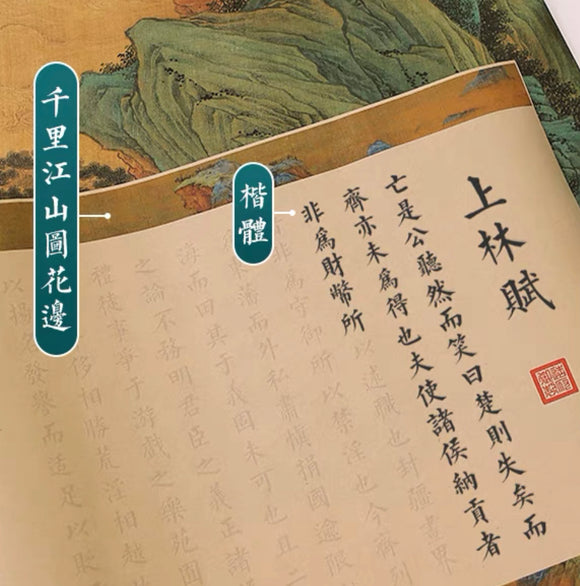 千里江山圖花邊
楷體
上林賦
亡是公聽然而笑曰楚則失矣而
齊亦未爲得也夫使諸侯納貢者
非爲財幣所以述職也封疆畫界
非爲守御所以禁淫也今齊列
東藩而外私肅慎捐國逾限
海而田其于義固未可也且二
之論不務明君臣之義正諸
禮徒事爭于游戲之樂苑囿
侈相勝荒淫相越
以揚名發譽而适足以貶